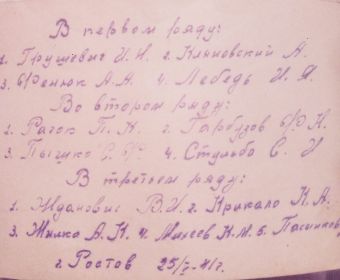 В первом ряду:
1. Грушевич И. И. 2. Климовский А.
3. Фенюк А. А. 4. Лебедь И. Я.
Во втором ряду:
1. Рагок П. К. 2. Гарбузов Ф. И.
3. Пыгуко С. Ф. 4. Стульба С. У
В третьем ряду:
1. Жданович В. И. 2. Крикало К. А.
3. Жилко А. К. 4. Михеев К. М. 5. Пасинков
г. Ростов 25/I-41г.